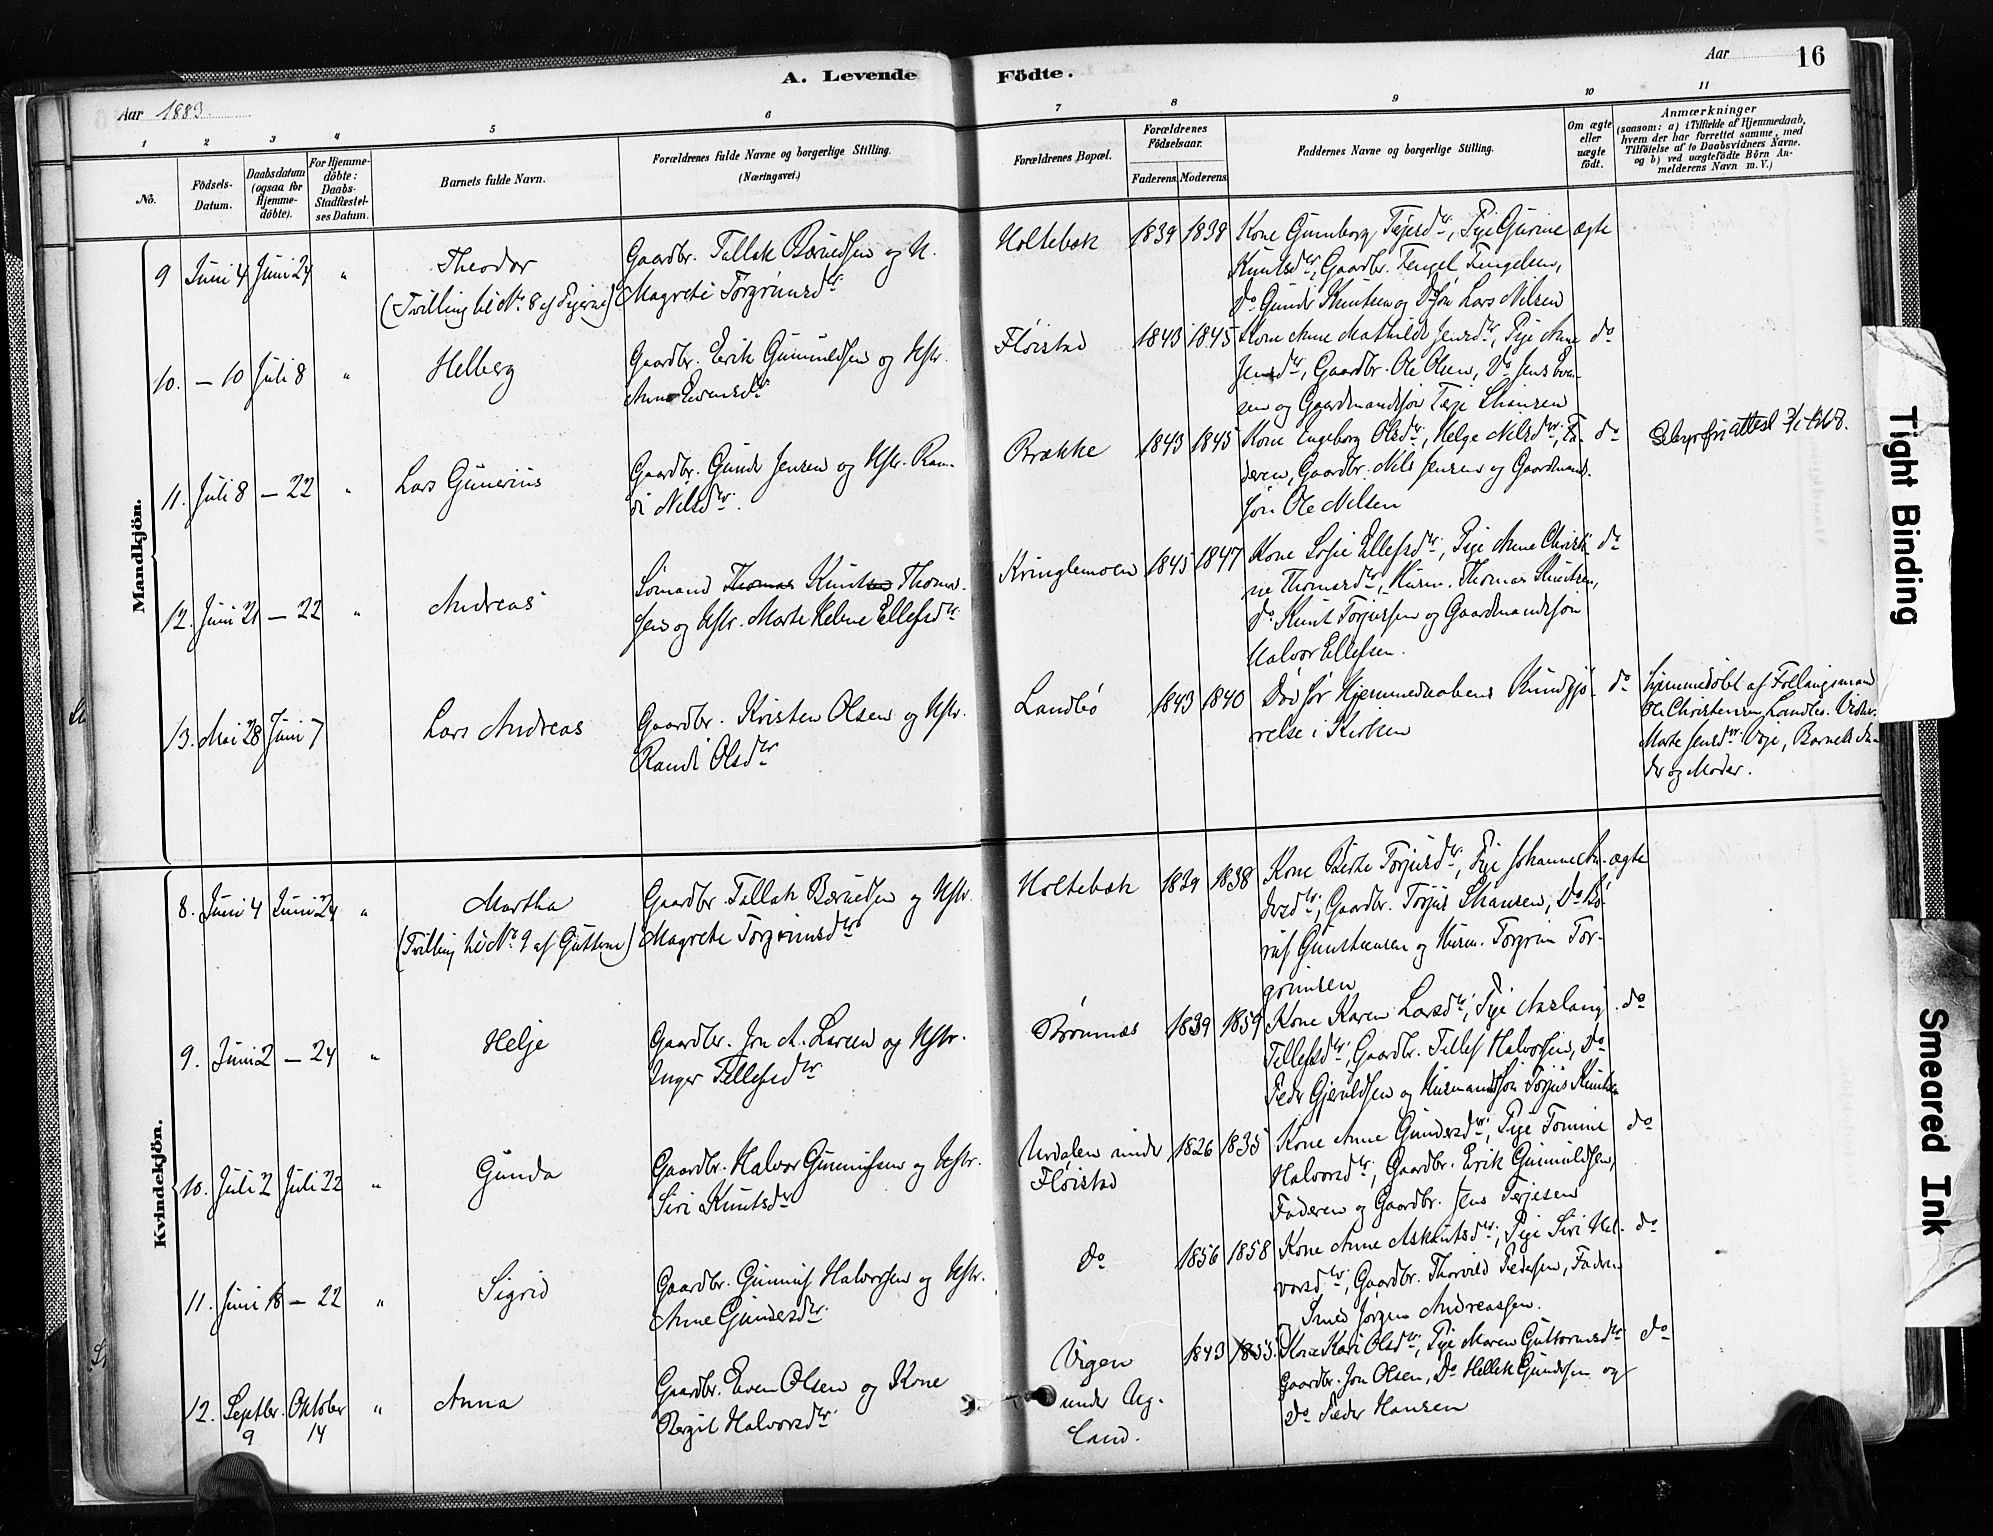 A. Levende Födte.
Aar 1883
Aar 16
1 2 3 4 5 6 7 8 9 10 11
No.
Födsels-Datum.
Daabsdatum (ogsaa for Hjemmedöbte).
For Hjemmedöbte: Daabs-Stadfæstelses Datum.
Barnets fulde Navn.
Forældrenes fulde Navne og borgerlige Stilling.
(Næringsvei.)
Forældrenes Bopæl.
Forældrenes Födselsaar.
Faderens. Moderens.
Faddernes Navne og borgerlige Stilling.
Om ægte eller uægte födt.
Anmærkninger
(saasom: a) i Tilfælde af Hjemmedaab, hvem der har forrettet samme, med Tilföielse af to Daabsvidners Navne. og b) ved uægtefödte Börn Anmelderens Navn m. V.)
Mandkjön.
9 Juni 4 Juni 24 " Theodor
(Tvilling til No. 8 af Pigerne)
Gaardbr. Tallak Børuldsen og H.
Magrete Torgrimsdtr.
Holtebæk 1839 1838
Kone Gunnborg Terjesdtr., Pige Gurine ægte
Knutsdtr., Gaardbr. Fengel Fengelsen,
Do Gunder Knutsen og Do Søn Lars Nilsen
10. — 10 Juli 8 " Helberg
Gaardbr. Erik Gunnuldsen og Hstr.
Anne Evensdtr.
Fløistad 1843 1845
Kone Anne Mathilde Jensdtr., Pige Anne do
Jensdtr., Gaardbr. Ole Olsen, Do Jens Even-
sen og Gaardmandssøn Terje Hansen
11. Juli 8 — 22 " Lars Gunerius
Gaardbr. Gunder Jensen og Hstr. Ran-
di Nilsdtr.
Brække 1843 1845
Kone Engeborg Olsdtr., Helge Nilsdtr., Fa- do
deren, Gaardbr. Nils Jensen og Gaardmands-
søn Ole Nilsen
12. Juni 21 — 22 " Andreas
Sømand Thomas Knutsen Thomas-
sen og Hstr. Marte Helene Ellefsdtr
Kringlemoen 1845 1847
Kone Sofie Ellefsdtr., Pige Anne Christi- do
ne Thomasdtr., Husm. Thomas Knutsen,
do Knut Torjussen og Gaardmandssøn
Halvor Ellefsen.
13. Mai 28 Juni 7 Lars Andreas
Gaardbr. Kristen Olsen og Hstr.
Randi Olsdtr
Landbø 1843 1840
Død før Hjemmedaabens Kundgjø- do
relse i Kirken
Hjemmedøbt af Follaugsmand
Ole Christensen Landbø. Vidner:
Marte Jensdtr. Voje, Barnets Fa-
der og Moder.
Kvindekjön.
8. Juni 4 Juni 24 " Martha
(Tvilling til No. 9 af Guttene)
Gaardbr. Tallak Børuldsen og Hstr.
Magrete Torgrimsdtr
Holtebæk 1839 1838
Kone Berthe Torjusdtr., Pige Johanne An- ægte
dersdtr., Gaardbr. Torjus Hansen, Do Bø-
rulf Gunstensen og Husm. Torgrim Tor-
grimsen
9. Juni 2 — 24 " Helje
Gaardbr. Jon A. Larsen og Hstr.
Inger Tellefsdtr
Brønnæs 1839 1859
Kone Karen Larsdtr, Pige Aaslaug do
Tellefsdtr., Gaardbr. Tellef Halvorsen, Do
Peder Gjeruldsen og Husmandssøn Torjus Knutsen
10. Juli 2 Juli 22 " Gunda
Gaardbr. Halvor Gunnulfsen og Hstr.
Siri Knutsdtr
Urdalen under
Fløistad
1826 1835
Kone Anne Gundersdtr., Pige Tomine do
Halvorsdtr., Gaardbr. Erik Gunnuldsen,
Faderen og Gaardbr. Jens Terjesen
11. Juni 18 — 22 " Sigrid
Gaardbr. Gunnulf Halvorsen og Hstr.
Anne Gundersdtr.
do 1856 1858
Kone Anne Asknutsdtr., Pige Siri Hal- do
vorsdtr., Gaardbr. Thorvild Pedersen, Faderen
, Smed Jørgen Andreassen.
12. Septbr. 9 Oktober 14 " Anna
Gaardbr. Even Olsen og Kone
Bergit Halvorsdtr.
Vigen
under Ug-
land.
1843 1855.
Kone Kari Olsdtr, Pige Maren Guttormsdtr do
Gaardbr. Jon Olsen, Do Hellek Gundersen og
Do Peder Hansen
Tight Binding
Smeared Ink